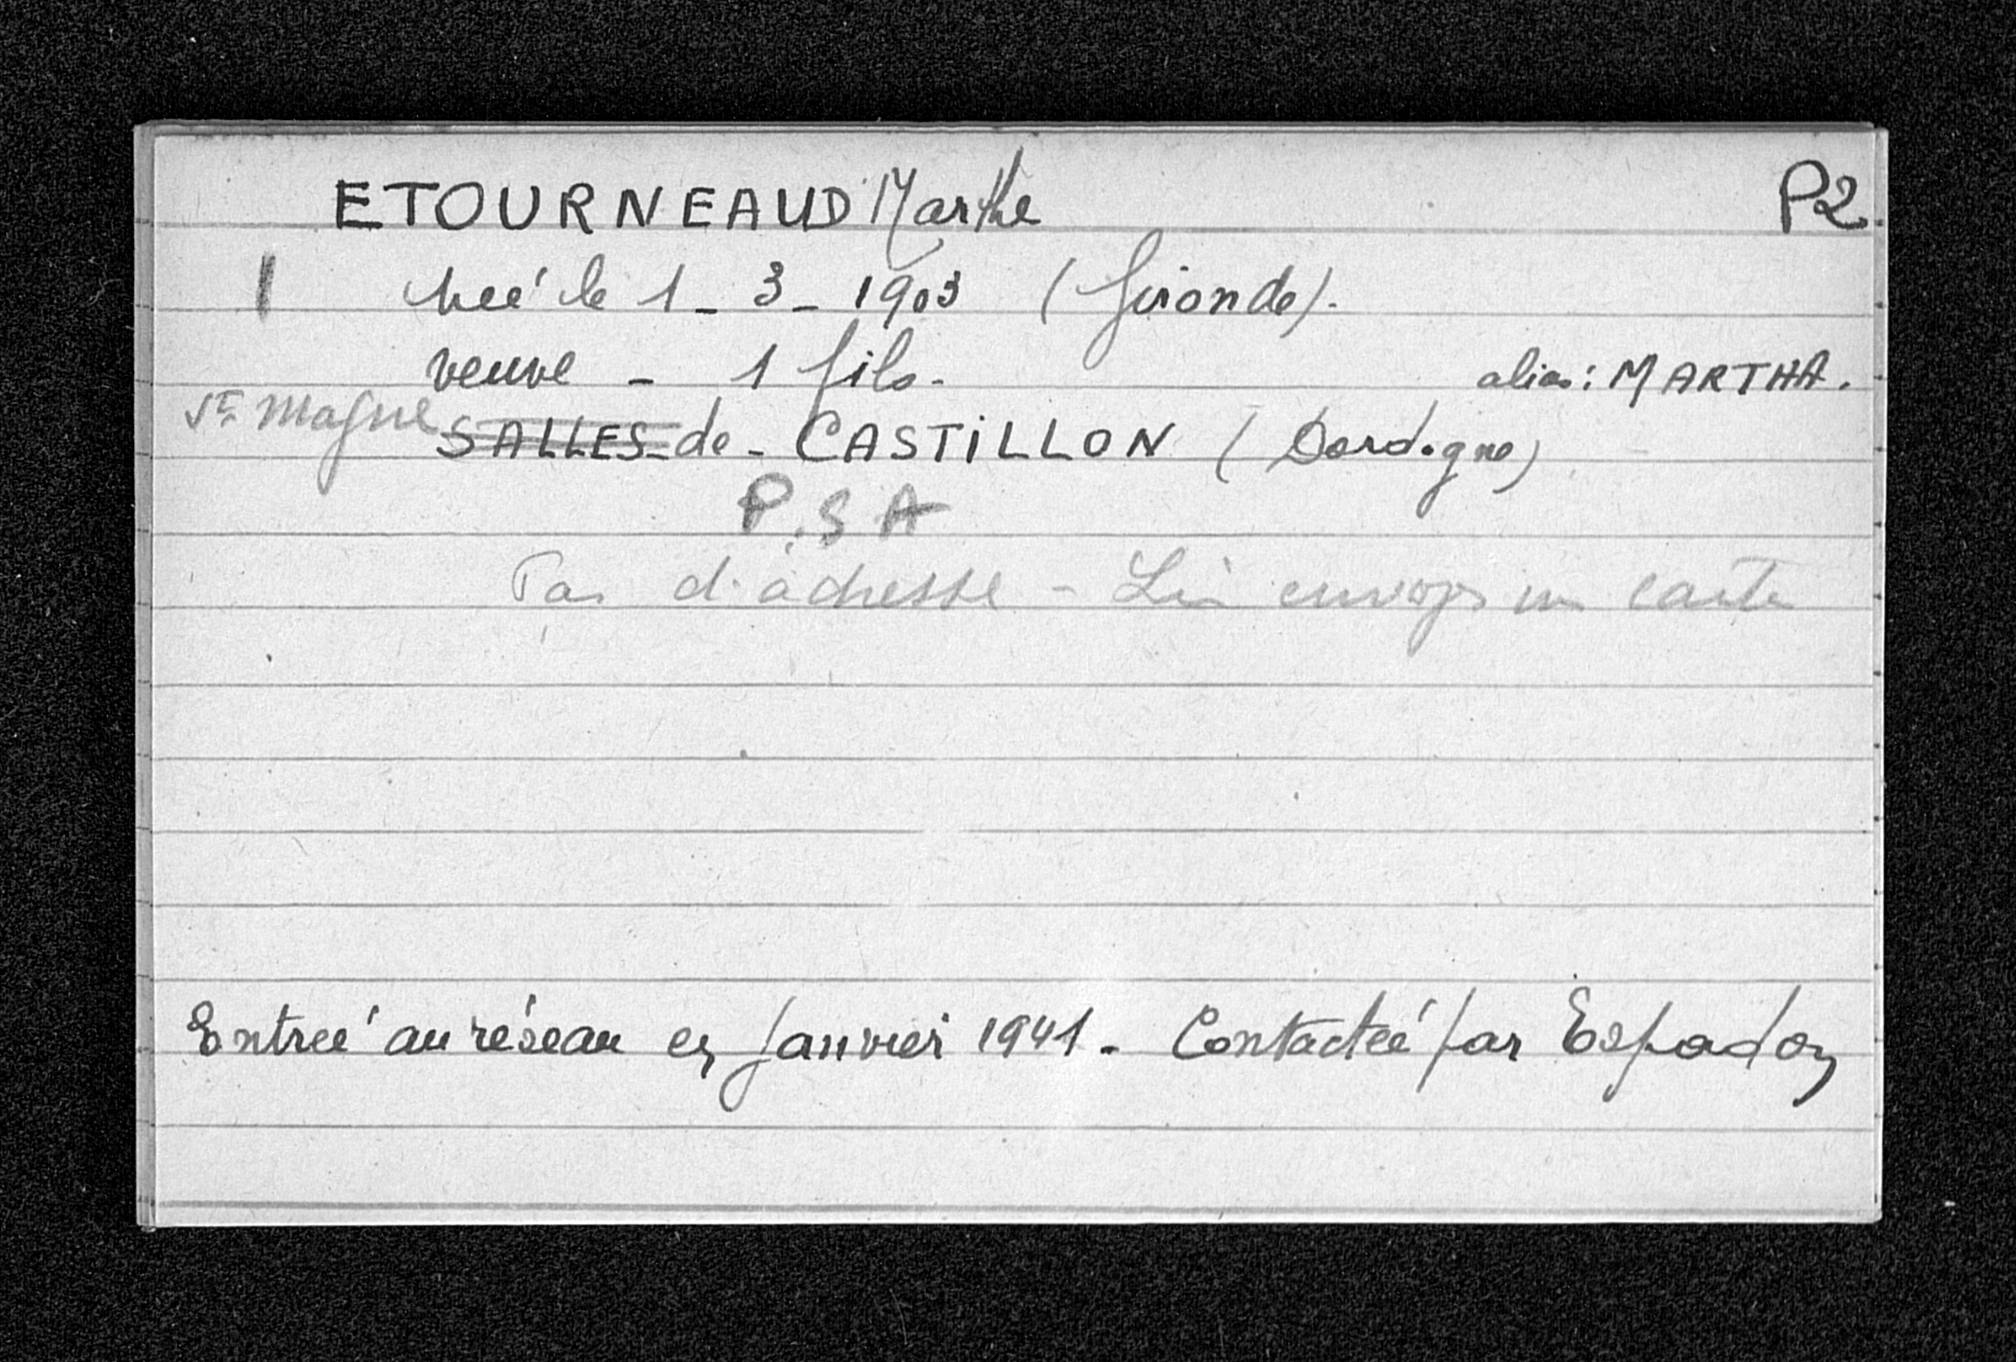 ETOURNEAUD Marthe P2
I née le 1-3-1903 (Gironde).
veuve - 1 fils. alias: MARTHA.
St Magne SALLES-de-CASTILLON (Dordogne)
P.S.A
Pas d'adresse - Lui envoyer une carte
Entrée au réseau en janvier 1941. Contactée par Espadon